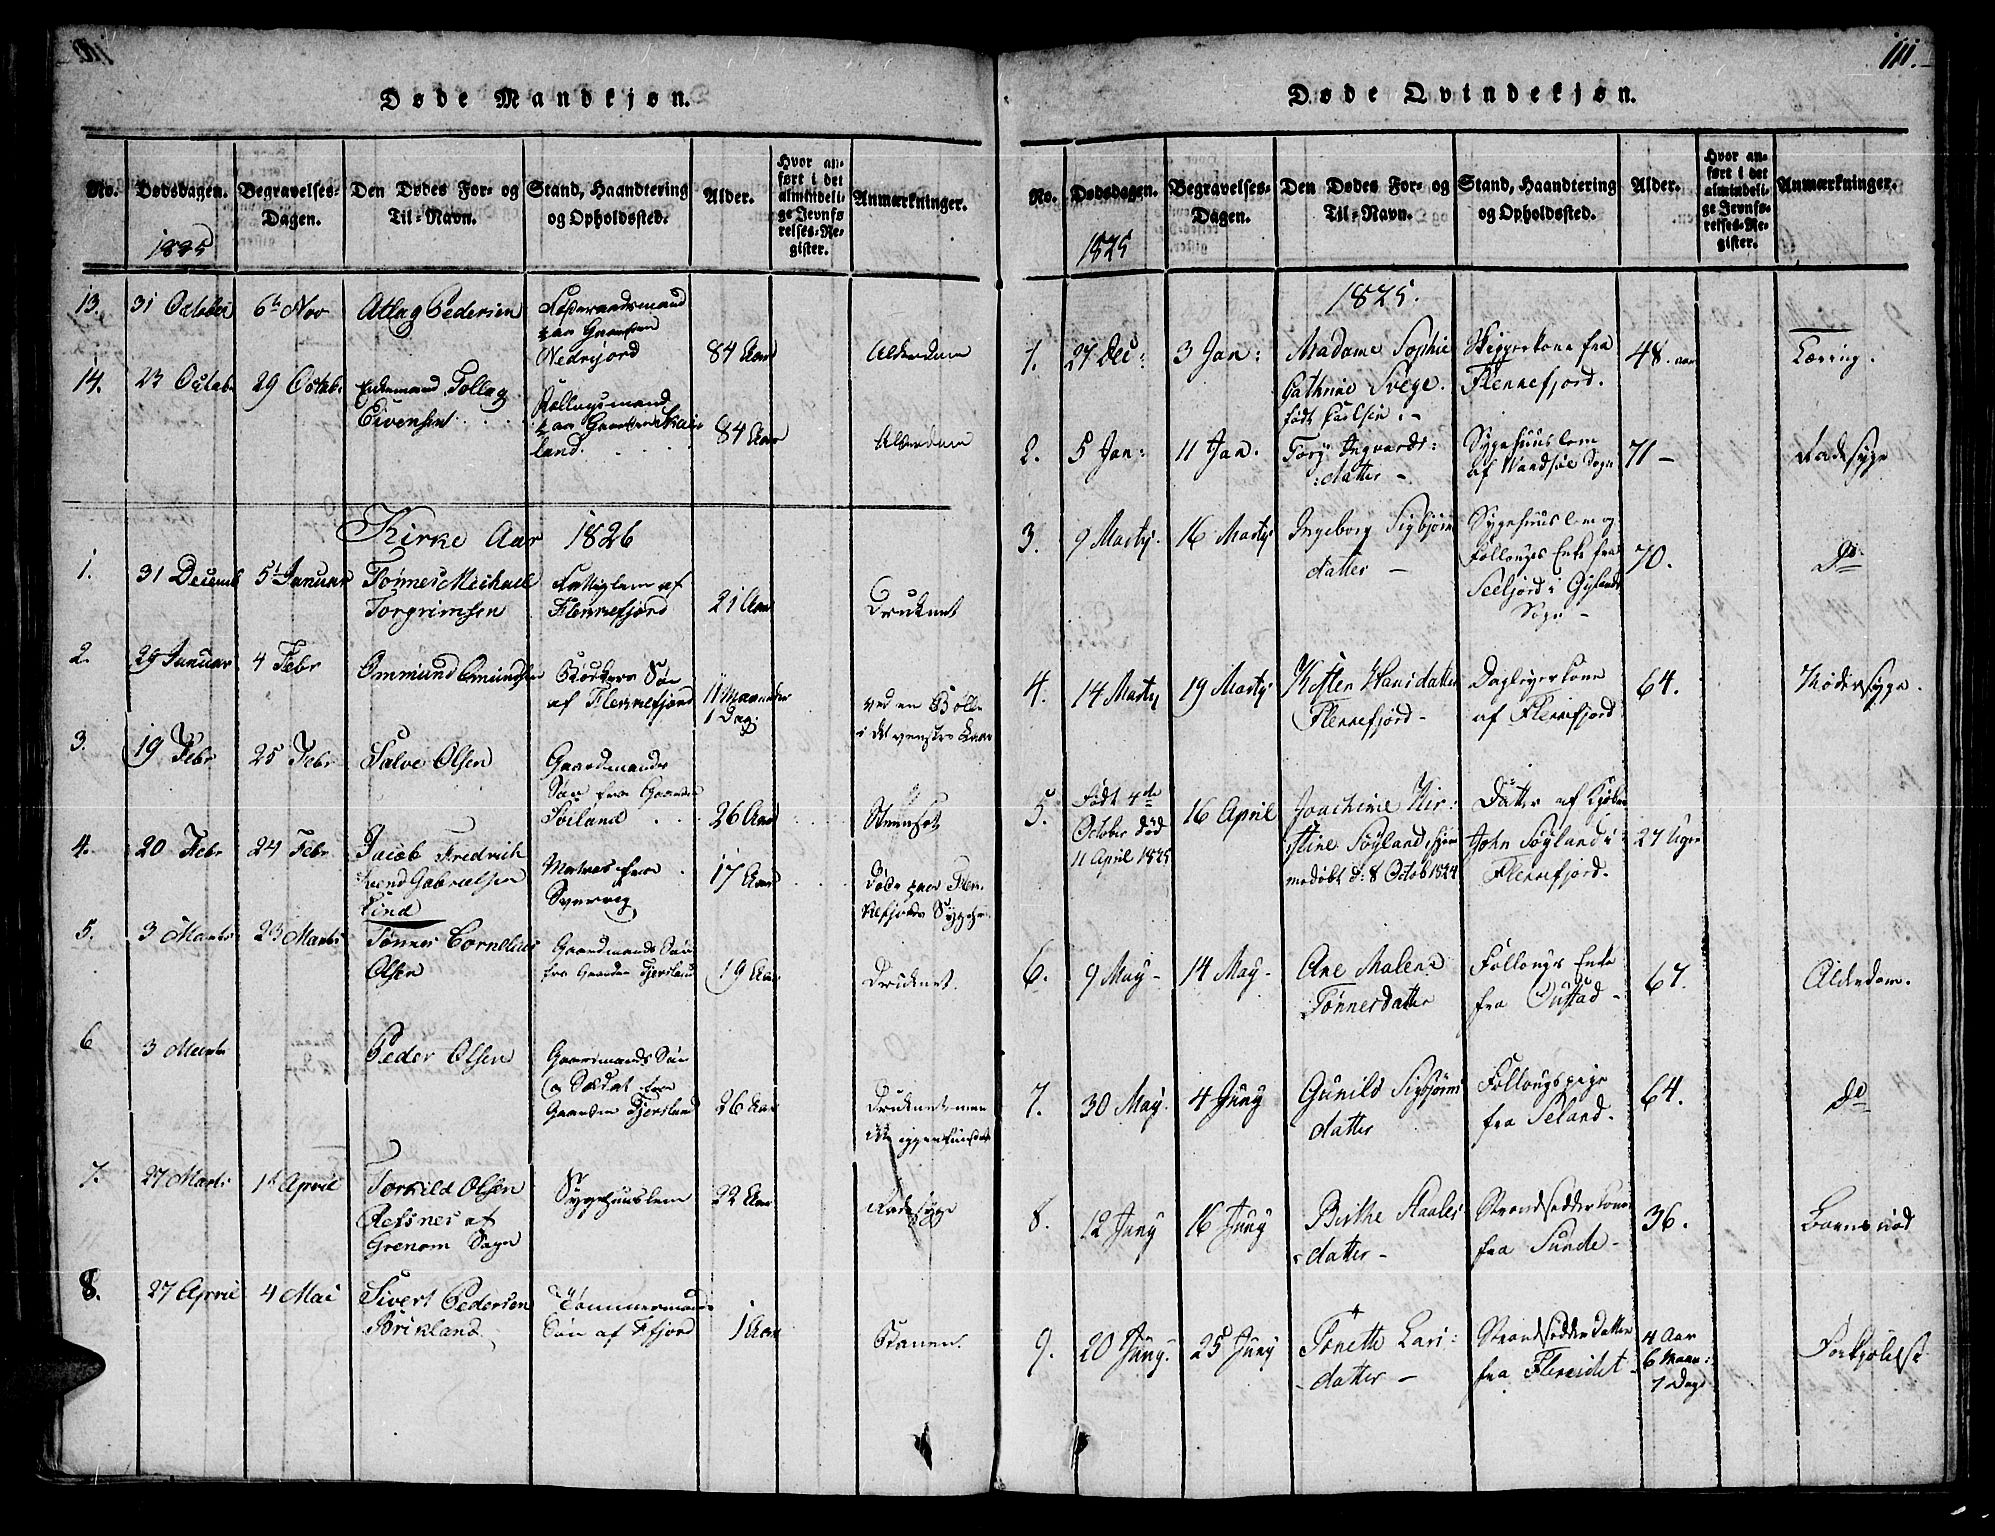 Døde Mandkjøn.
No.
Dødsdagen.
1825
Begravelses-
Dagen.
Den Dødes For- og
Til-Navn.
Stand, Haandtering
og Opholdssted.
Alder.
Hvor an-
ført i det
almindeli-
ge Jevnfø-
relses-Re-
gister.
Anmærkninger.
13.
31 October
6te Nov
Atlag Pedersen
Nedrejord
84 Aar
Alderdom
14.
23 Octobr
29 Octobr
Enkemand Tollag
Eivensen
land.
84 Aar
Alderdom
Kirke Aar 1826
1.
31 Decemb
5t Januar
Tønnes Michael
Torgrimsen
Fattiglem af
Flekkefjord
21 Aar
Druknet
2.
29 Januar
4 Febr
Ommund Omundsen
Bødkers Søn
af Flekkefjord
11 Maaneder
1 Dag.
ved en Byld
i det venstre Laar
3.
19 Febr
25 Febr
Salve Olsen
Gaardmands
Søn fra Gaarden
Søiland
26 Aar
4.
20 Febr
24 Febr
Jacob Fredrich
Lund Gabrielsen
Lind
Matros fra
17 Aar
Døde paa Flek-
kefjords Sygehus
5.
3 Marts
23 Marts
Tønnes Cornelius
Olsen
Gaardmands Søn
fra Gaarden Tjersland
19 Aar
Druknet.
6
3 Marts
Peder Olsen
Gaardmands Søn
og Soldat fra
Gaarden Tjersland
26 Aar
Druknet men
ikke igjenfundet
7.
27 Marts
1t April
Torkild Olsen
Refsnes af
Grenom Sogn
Sygehuuslem
22 Aar
Radesyge
8.
27 April
4 Mai
Sivert Pedersen
Birkland
Tømmermands
Søn af Ffjord
1 Aar
111.
Døde Qvindekjøn.
No.
Dødsdagen.
1825
Begravelses-
Dagen.
Den Dødes For- og
Til-Navn.
Stand, Haandtering
og Opholdssted.
Alder.
Hvor an-
ført i det
almindeli-
ge Jevnfø-
relses-Re-
gister.
Anmærkninger.
1825.
1.
27 Dec:
3 Jan:
Madame Sophie
Cathrine Svege.
født Carlsen. -
Skipperkone fra
Flekkefjord.
48. aar
Tæring.
2.
5 Jan:
11 Jan.
Torj Ingvards:
:datter -
Sygehuuslem
af Vandsøe Sogn
71 -
Radesyge
3.
9 Marty
16 Marty
Ingeborg Sigbjørns
datter -
Sygehuuslem og
Føllougs Enke fra
Seeljord i Gylands
Sogn -
70.
Do
4.
14 Marty
19 Marty
Kisten Hansdatter
Flekkefjord -
Daglejerkone
af Flekkefjord
64.
Modersyge.
5.
Født 4de
October død
11 April 1825
16 April
Joachime Kir:
stine Søyland hjem
medøbt d: 8 Octob 1824
Datter af
John Søyland i
Flekkefjord.
27 Uger
6.
9 May -
14 May -
Ane Malene
Tønnesdatter
Føllougs Enke
fra Øustad -
67.
Alderdom.
7.
30 May
4 Juny
Gunild Sigbjørns
datter
Føllougspige
fra Seland.
64.
Do
8.
12 Juny
16 Juny
Birthe Staales
:datter -
Strandsidderkone
fra Sunde -
36.
Barnsnød
9.
20 Juny.
25 Juny
Tonette Lars:
- datter -
Strandsidder datter
fra Flekeidet
4 Aar
6 Maan:
7 Dage
Forkjølelse